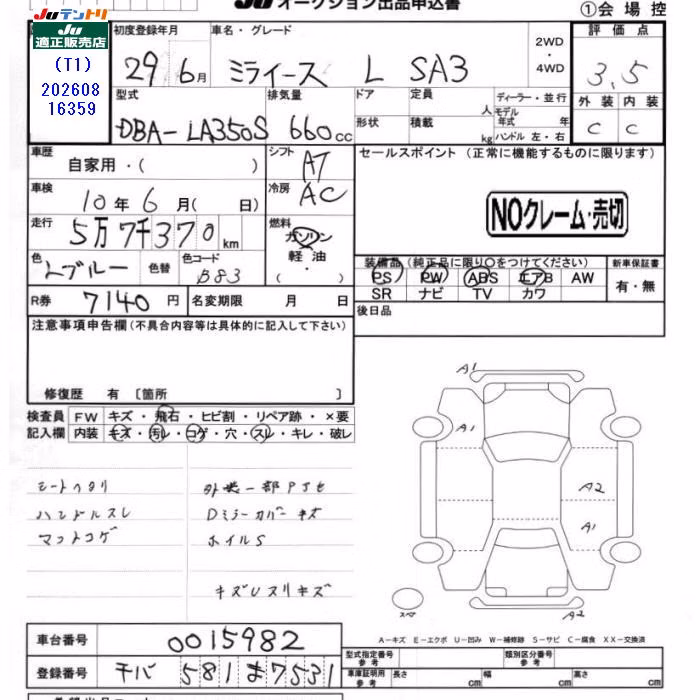 Juテントリ
Ju
適正販売店
(T1)
202608
16359
オークション出品申込書
①会場控
初度登録年月
29年6月
車名・グレード
ミライース L SA3
2WD・4WD
評価点
3.5
外装 内装
C C
型式
DBA-LA350S
排気量
660cc
ドア
定員 人
ディーラー・並行
モデル年式 年
形状
積載 kg
ハンドル 左・右
車歴
自家用・( )
シフト
AT
車検
10年6月( 日)
冷房
AC
走行
5万7千370km
燃料
ガソリン
軽油・
( )
色
Lブルー
色替
色コード
B83
R券
7140円
名変期限 月 日
セールスポイント (正常に機能するものに限ります)
NOクレーム・売切
装備品(純正品に限り○をつけてください)
PS PW ABS エアB AW
SR ナビ TV カワ
新車保証書
有・無
後日品
注意事項申告欄(不具合内容等は具体的に記入して下さい)
修復歴 有 〔箇所 〕
検査員記入欄
FW キズ・飛石・ヒビ割・リペア跡・×要
内装 キズ・汚レ・コゲ・穴・スレ・キレ・破レ
シートヘタリ
ハンドルスレ
マットコゲ
外装一部PJセ
Dミラーカバーキズ
ホイルS
キズUスリキズ
A1
A1
A2
A1
A2
スペ
A-キズ E-エクボ U-凹み W-補修跡 S-サビ C-腐食 XX-交換済
車台番号
0015982
登録番号
千バ 581 ま 7531
型式指定番号
参考
類別区分番号
参考
車庫証明用
参考
長さ cm 幅 cm 高さ cm